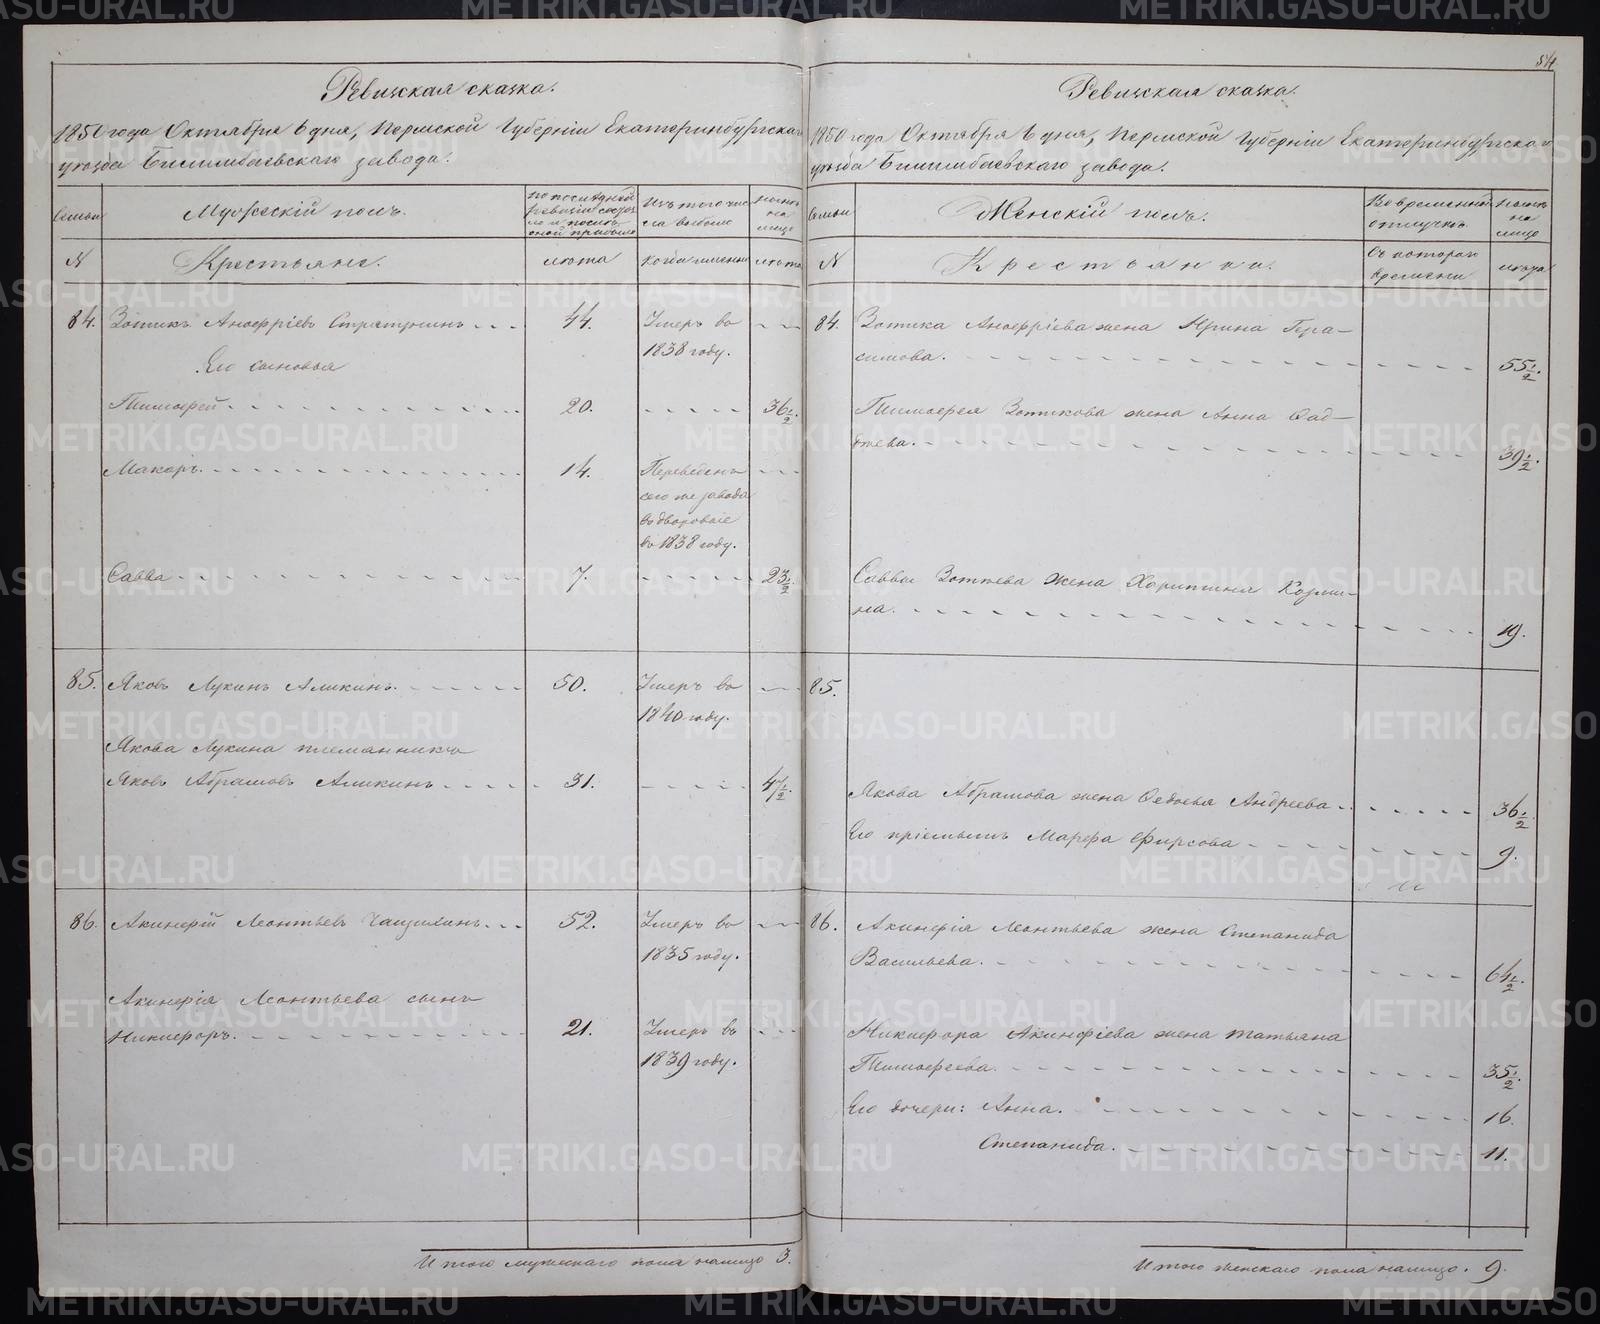 54
Ревизская сказка.
1850 года Октября 6 дня, Пермской Губерніи Екатеринбургскаго
уѣзда Билимбаевскаго завода.
Семьи
Мужескій полъ.
По послѣдней
ревизіи состоя
ло и послѣ
оной прибыло
Изъ того чис
ла выбыло
Нынѣ
на
лицо
№
Крестьяне.
лѣта
когда именно
лѣта
84. Зотикъ Анофріевъ 44. Умеръ въ
1838 году.
Его сыновья
Тимофей 20. 36 1/2.
Макаръ. 14. Переведенъ
сего же завода
въ дворовые
въ 1838 году.
Савва 7. 23 1/2
85. Яковъ Лукинъ Аликинъ. 50. Умеръ въ
1840 году.
Якова Лукина племянникъ
Яковъ Абрамовъ Аликинъ 31. 47 1/2.
86. Акинфій Леонтьевъ Чащихинъ 52. Умеръ въ
1835 году.
Акинфія Леонтьева сынъ
Никифоръ. 21. Умеръ въ
1839 году.
Итого мужескаго пола налицо 3.
Ревизская сказка.
1850 года Октября 6 дня, Пермской Губерніи Екатеринбургскаго
уѣзда Билимбаевскаго завода.
Семьи
Женскій полъ.
Во временной
отлучкѣ
Нынѣ
на
лицо
№
Крестьянки.
Съ котораго
времени
лѣта
84. Зотика Анофріева жена Ирина Гера-
симова. 55 1/2.
Тимофея Зотикова жена Анна Фад-
дѣева. 39 1/2.
Саввы Зотѣева жена Харитинья Козми-
на. 19.
85.
Якова Абрамова жена Федосья Андреева 36 1/2
Его пріемышъ Марфа Фирсова 9.
86. Акинфія Леонтьева жена Степанида
Васильева. 64 1/2.
Никифора Акинфіева жена Татьяна
Тимофеева. 35 1/2.
Его дочери: Анна. 16.
Степанида. 11.
Итого женскаго пола налицо. 9.
METRIKI.GASO-URAL.RU